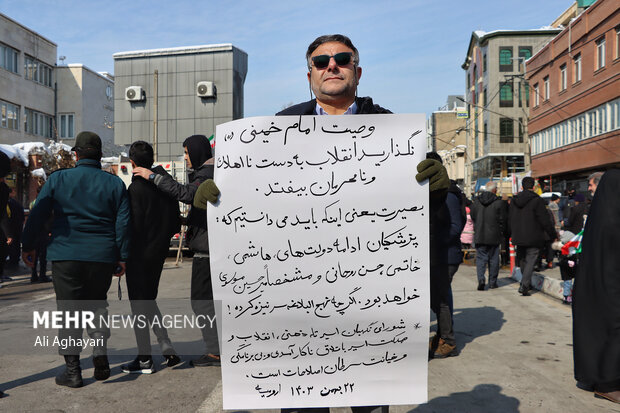 وصیت امام خمینی (ره)
نگذارید انقلاب به دست نااهلان
و نامحرمان بیفتد.
بصیرت یعنی اینکه باید می دانستیم که:
پزشکیان ادامه دولت‌های، هاشمی،
خاتمی، حسن روحانی و مشخصاً میرحسین موسوی
خواهد بود. اگرچه نهج البلاغه سر نیزه کرده!
شورای نگهبان
انقلاب و
ناکارآمدی
اصلاحات است.
۲۲ بهمن ۱۴۰۳ ارومیه
MEHR NEWS AGENCY
Ali Aghayari